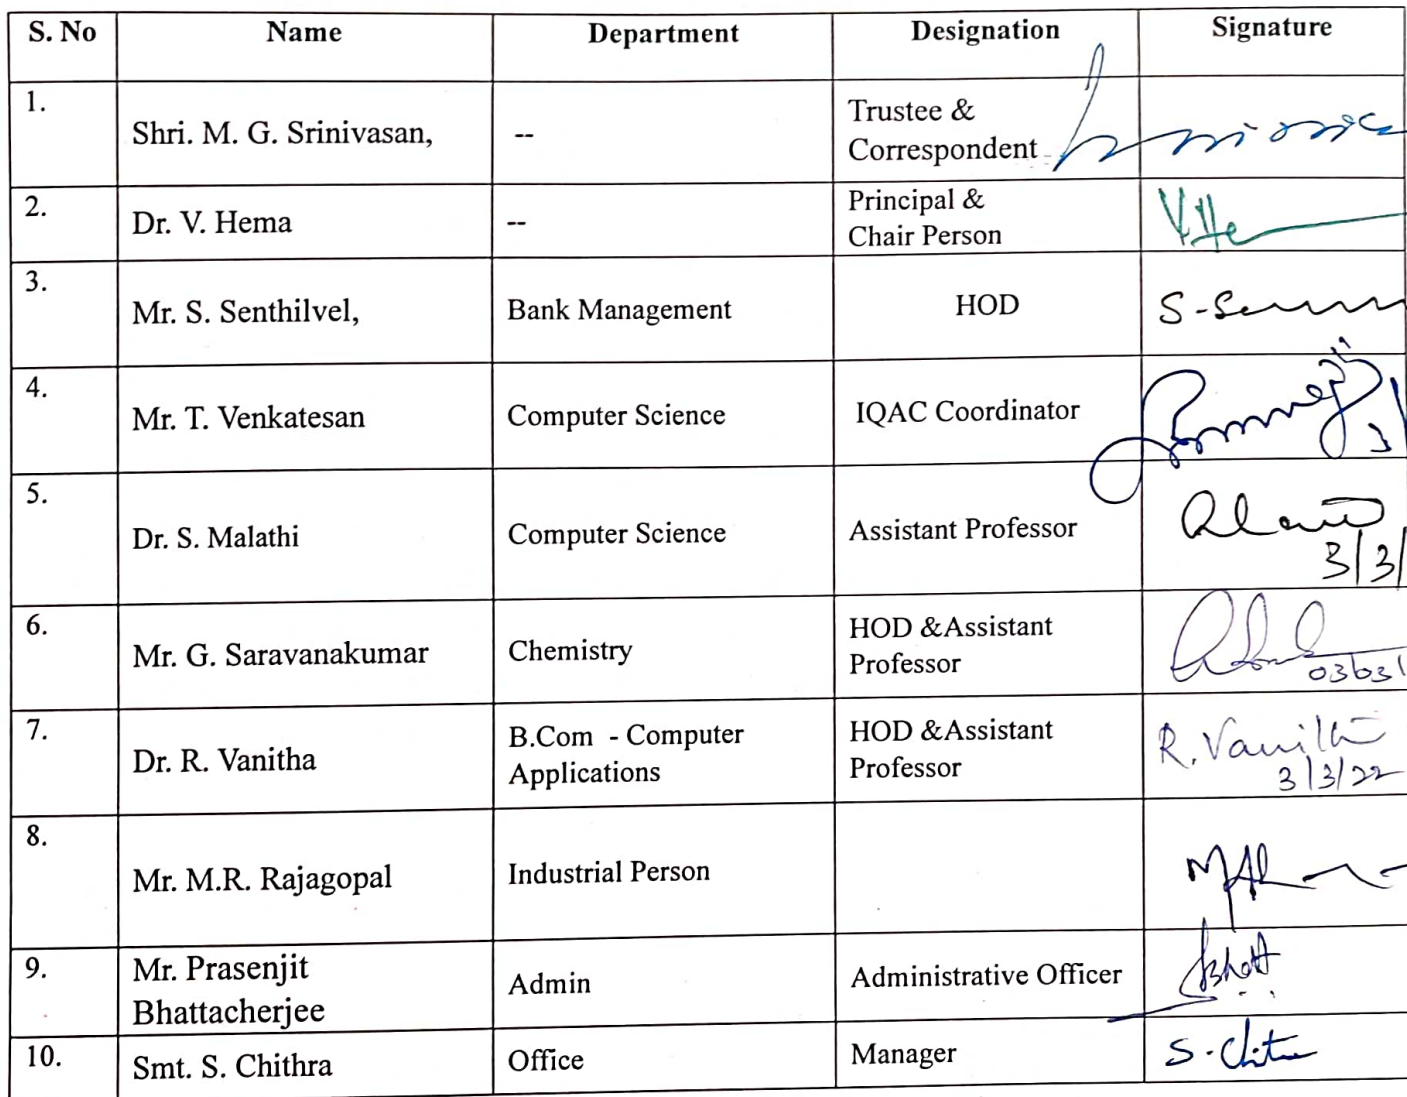 S. No Name Department Designation Signature
1. Shri. M. G. Srinivasan, -- Trustee &
Correspondent
2. Dr. V. Hema -- Principal &
Chair Person V.He
3. Mr. S. Senthilvel, Bank Management HOD
4. Mr. T. Venkatesan Computer Science IQAC Coordinator
5. Dr. S. Malathi Computer Science Assistant Professor
3/3/
6. Mr. G. Saravanakumar Chemistry HOD &Assistant
Professor
7. Dr. R. Vanitha B.Com - Computer
Applications HOD &Assistant
Professor R. Vanitha
3/3/22
8. Mr. M.R. Rajagopal Industrial Person
9. Mr. Prasenjit
Bhattacherjee Admin Administrative Officer
10. Smt. S. Chithra Office Manager